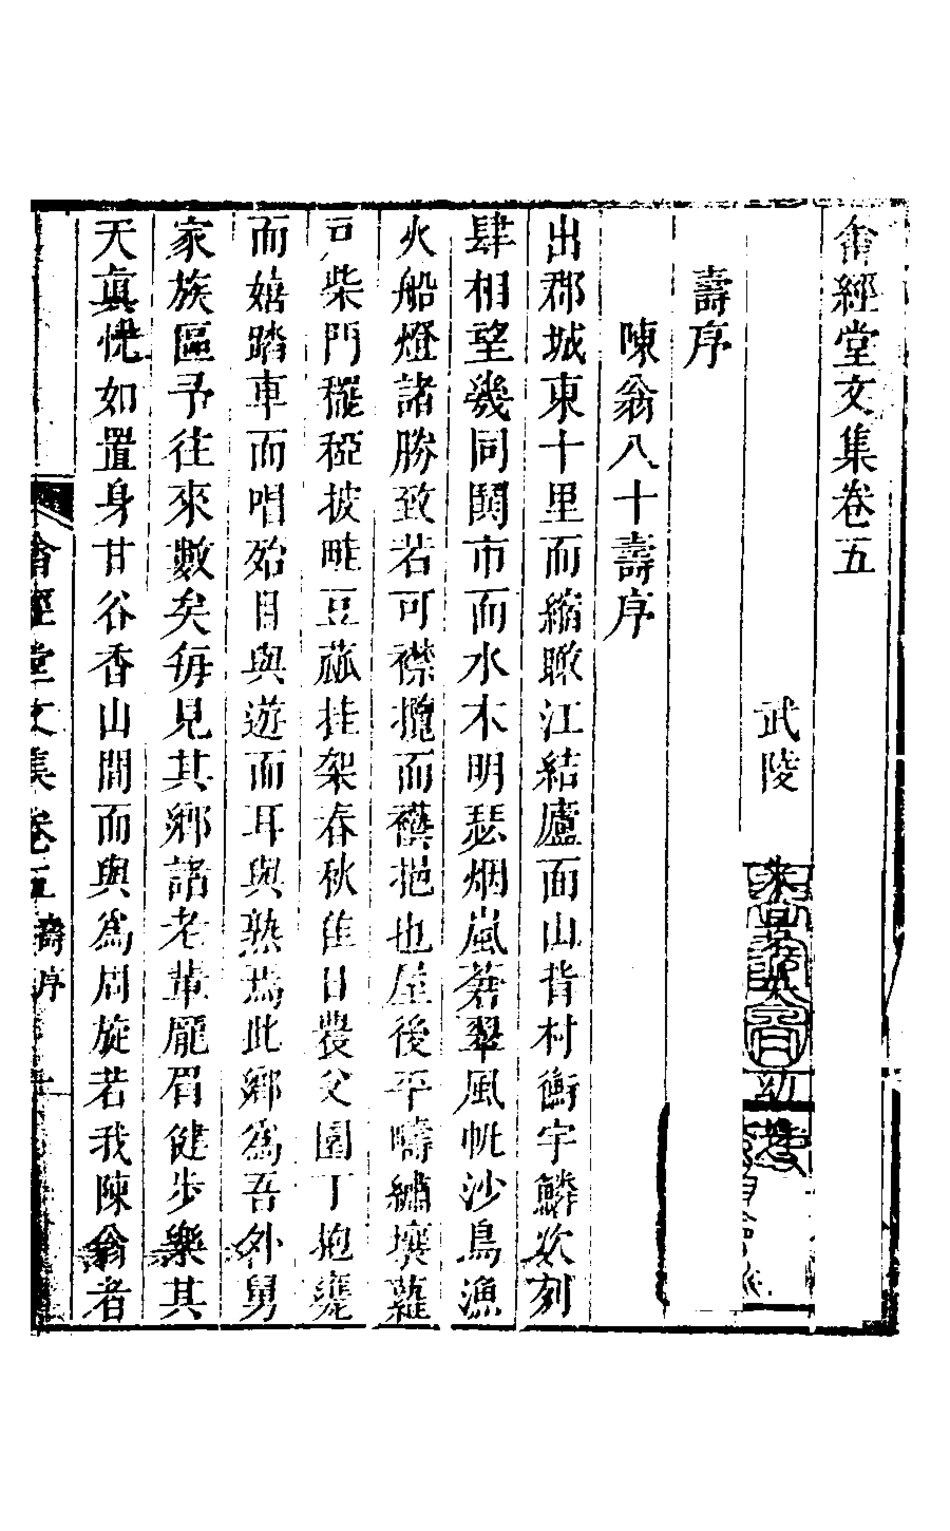 畬經堂文集卷五
武陵
壽序
陳翁八十壽序
出郡城東十里而縮瞰江結廬面山背村衡宇鱗次列
肆相望幾同闤市而水木明瑟烟嵐蒼翠風帆沙鳥漁
火船燈諸勝致若可襟攬而襆挹也屋後平疇繡壤蘿
戸柴門䆉稏披畦豆蓏挂架春秋佳日農父園丁抱甕
而嬉踏車而唱殆目與遊而耳與熟焉此鄉為吾外舅
家族區予往來數矣每見其鄉諸老輩龐眉健步樂其
天真恍如置身甘谷香山間而與為周旋若我陳翁者
畬經堂文集卷五 壽序